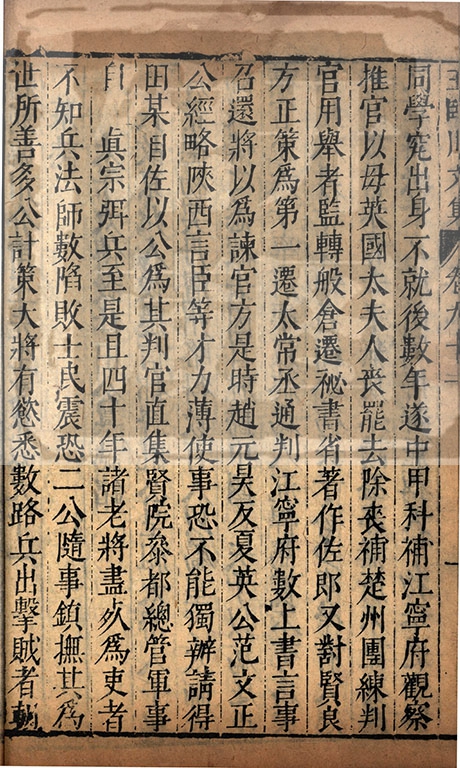 王臨川文集 卷九十一
同學究出身不就後數年遂中甲科補江寧府觀察
推官以母英國太夫人喪罷去除喪補楚州團練判
官用舉者監轉般倉遷祕書省著作佐郎又對賢良
方正策為第一遷太常丞通判江寧府數上書言事
召還將以為諫官方是時趙元昊反夏英公范文正
公經略陝西言臣等才力薄使事恐不能獨辦請得
田某自佐以公為其判官直集賢院叅都總管軍事
自 真宗弭兵至是且四十年諸老將盡死為吏者
不知兵法師數陷敗士民震恐二公隨事鎮撫其為
世所善多公計策大將有慾悉數路兵出擊賊者朝